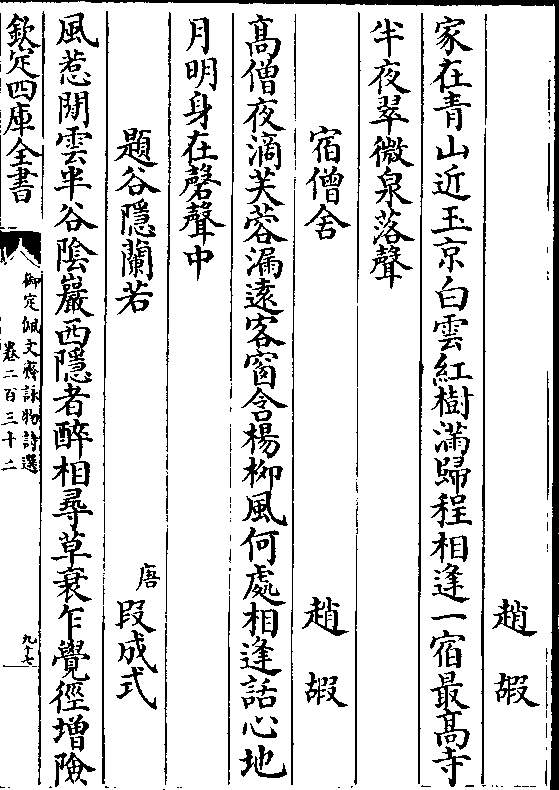 趙嘏
家在青山近玉京白雲紅樹滿歸程相逢一宿最髙寺
半夜翠微泉落聲
宿僧舍
趙嘏
髙僧夜滴芙蓉漏逺客窗含楊栁風何處相逢話心地
月明身在磬聲中
題谷隱蘭若
唐 段成式
風惹閒雲半谷陰巖西隱者醉相尋草衰乍覺徑增險
欽定四庫全書
御定佩文齋詠物詩選
卷二百三十二
九十七